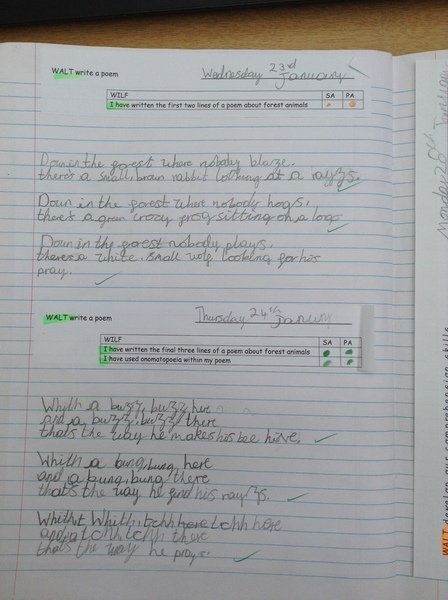 WALT write a poem
Wednesday 23rd January
WILF SA PA
I have written the first two lines of a poem about forest animals
Down in the forest where nobody blaze,
there's a small, braun rabbit looking at a rayzs.
Doun in the forest where nobody hogs,
there's a green crazy frog sitting on a logo
Doun in the forest nobody plays,
theres a white, small wolf looking for his
pray.
WALT write a poem
Thursday 24th January
WILF SA PA
I have written the final three lines of a poem about forest animals
I have used onomatopoeia within my poem
Whith a buzz, buzz here
and a buzz, buzz there
thats the way he makes his bee hive.
Whith a bung, bung here
and a bung, bung there
that's the way he find his rayzs.
Whith tchh here tchh here
and a tchh tchh there
thats the way he prays.
WALT develop our comprehension skills